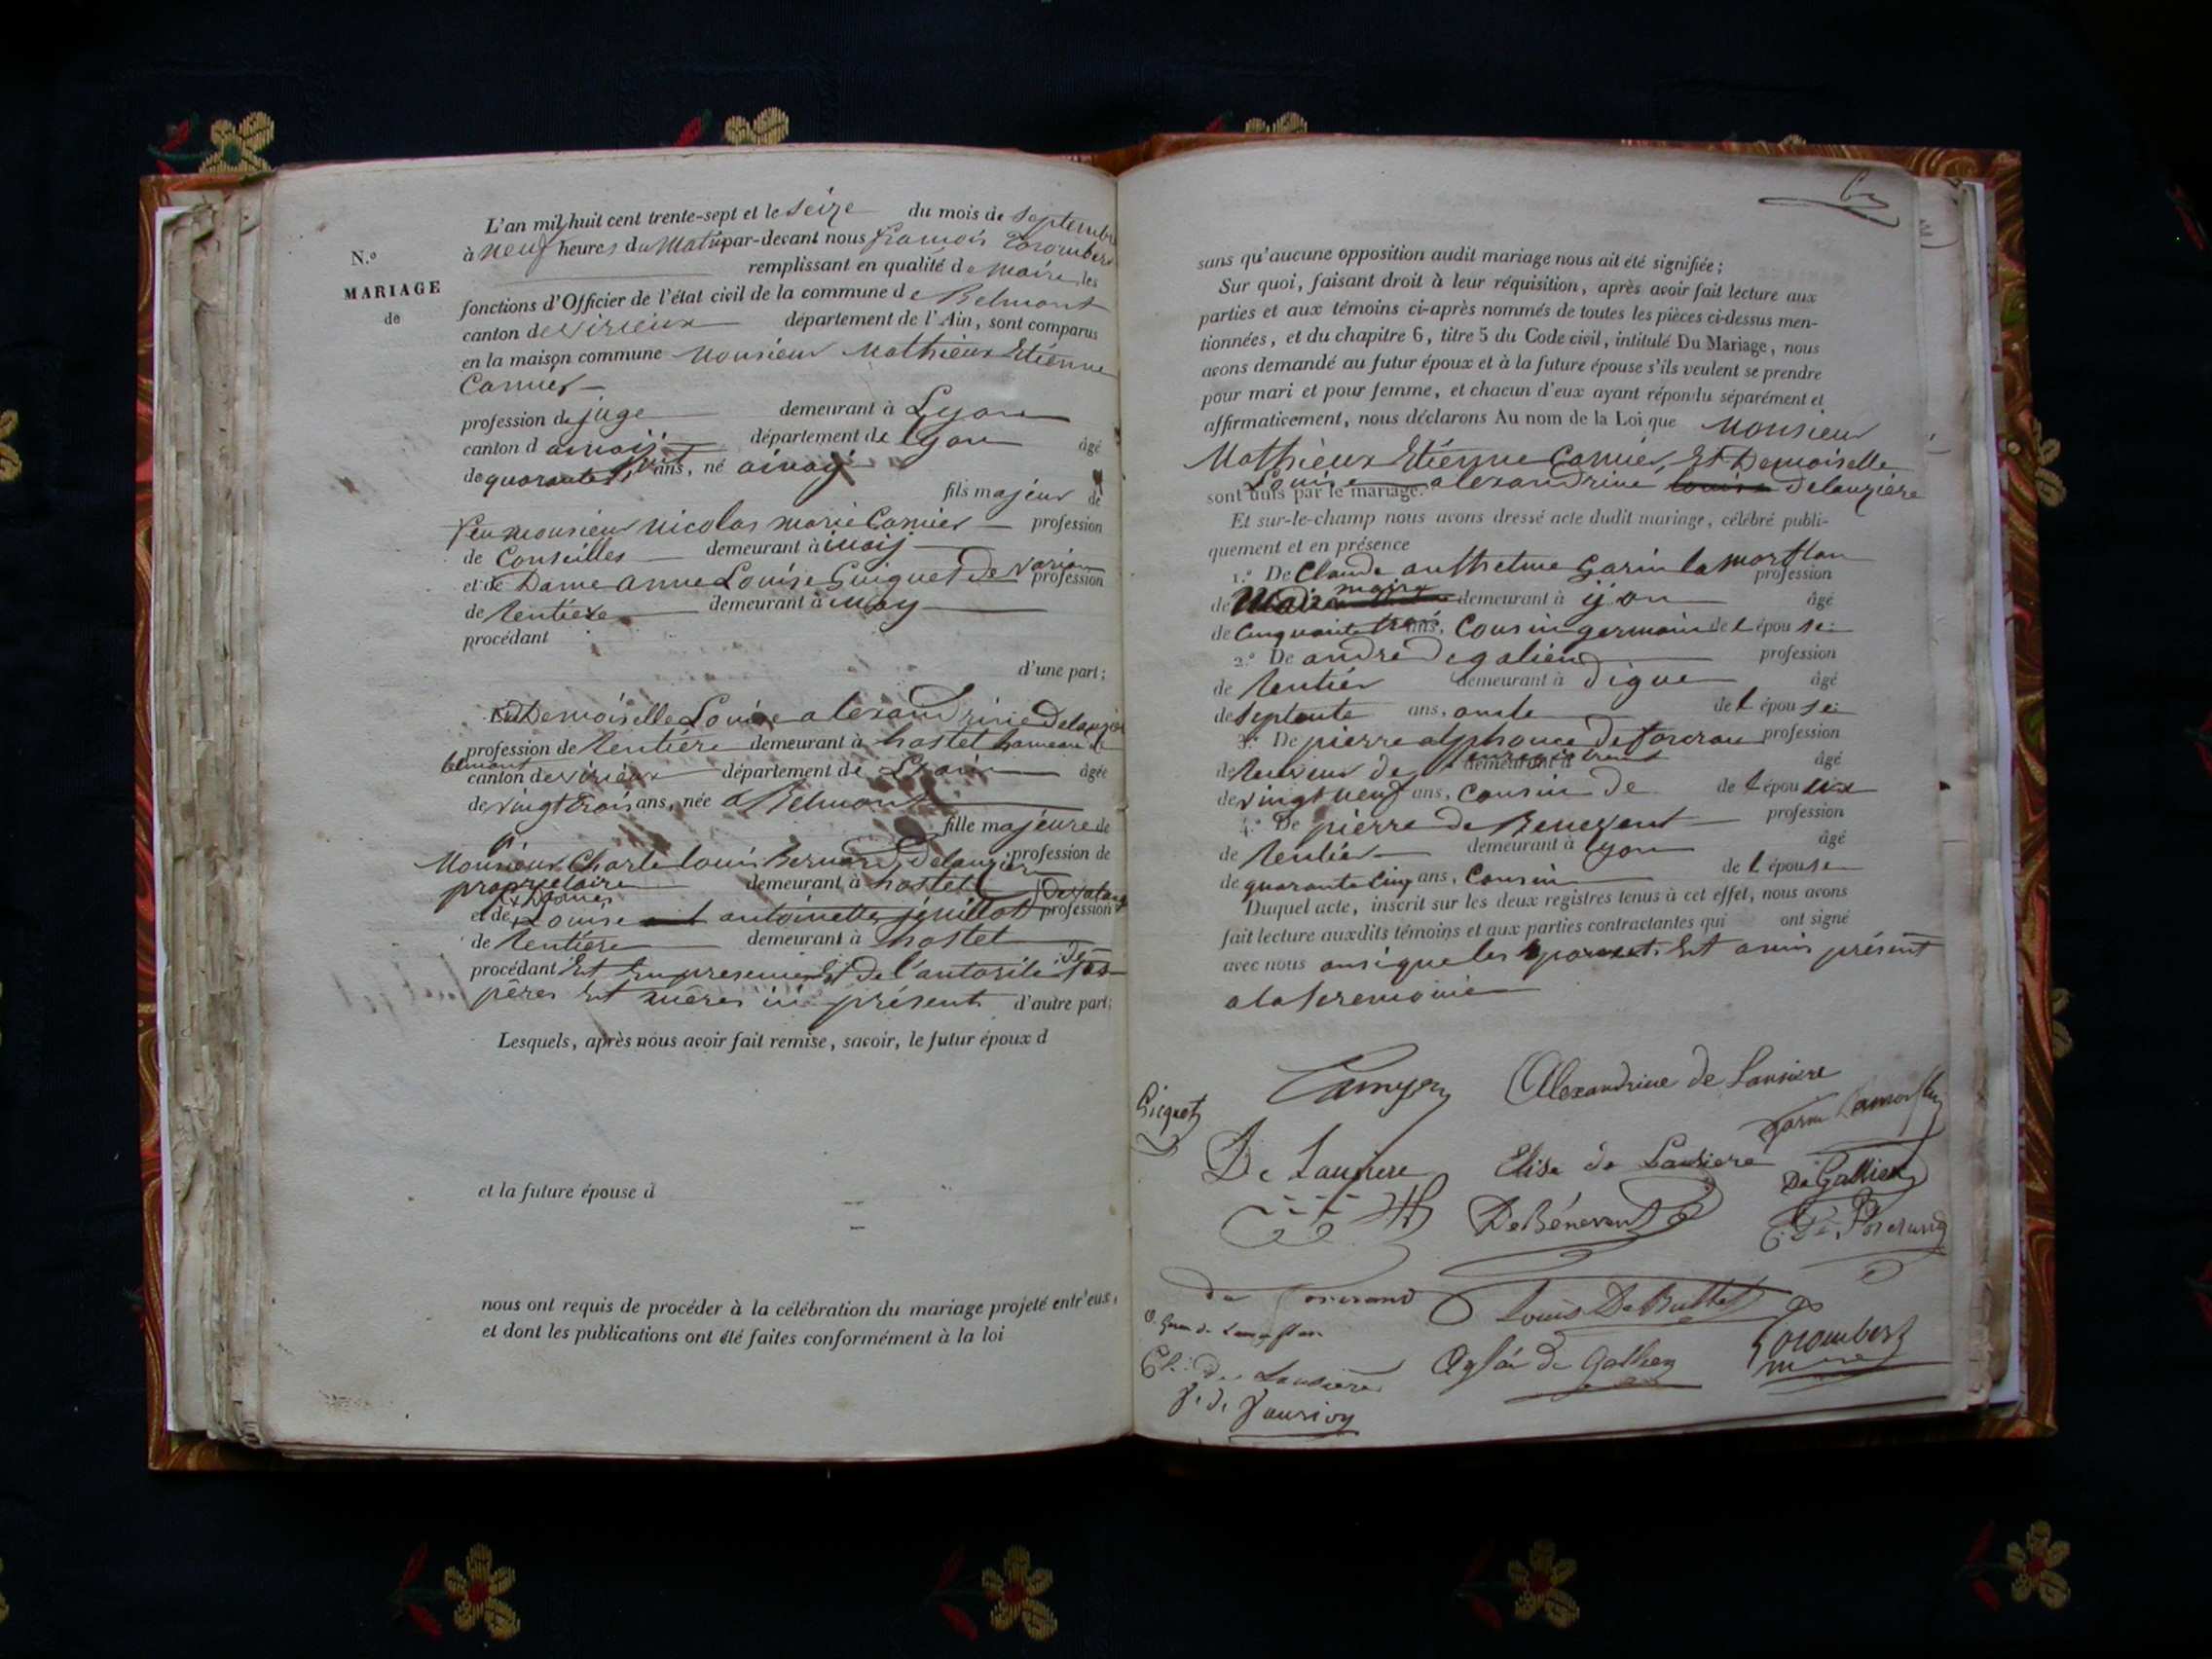 N.o
MARIAGE
de
L'an mil huit cent trente-sept et le seize du mois de septembre
à neuf heures du Matin par-devant nous françois
remplissant en qualité de Maire les
fonctions d'Officier de l'état civil de la commune de Belmont
canton de virieux département de l'Ain, sont comparus
en la maison commune Monsieur Mathieux Etiénne
Camier
profession de juge demeurant à Lyon
canton d ainaij département de lyon âgé
de quarante huit ans, né ainaij
fils majeur de
feu monsieur Nicolas marie Camier profession
de Conseilles demeurant à
et de Dame anne Louise Guiguet de profession
de Rentiere demeurant à
procédant
d'une part;
Et Demoiselle Louise alexandrine Delauzière
profession de Rentiére demeurant à hostel hameau de
belmont
canton de virieux département de Lain âgée
de vingt trois ans, née a Belmont
fille majeure de
Monsieur Charle louis bernard delauzière profession de
propriétaire demeurant à hostel
et de Dame Louise antoinette profession
de Rentiere demeurant à hostel
procédant Et En presence Et de l'autorité de ses
péres Et méres ici présent d'autre part;
Lesquels, après nous avoir fait remise, savoir, le futur époux d
et la future épouse d
nous ont requis de procéder à la célébration du mariage projeté entr'eux,
et dont les publications ont été faites conformément à la loi
sans qu'aucune opposition audit mariage nous ait été signifiée;
Sur quoi, faisant droit à leur réquisition, après avoir fait lecture aux
parties et aux témoins ci-après nommés de toutes les pièces ci-dessus men-
tionnées, et du chapitre 6, titre 5 du Code civil, intitulé Du Mariage, nous
avons demandé au futur époux et à la future épouse s'ils veulent se prendre
pour mari et pour femme, et chacun d'eux ayant répondu séparément et
affirmativement, nous déclarons Au nom de la Loi que Monsieur
Mathieux Etiénne Camier Et Demoiselle
Louise alexandrine louise delauziére
sont unis par le mariage.
Et sur-le-champ nous avons dressé acte dudit mariage, célébré publi-
quement et en présence
1.o De Claude anthelme Garin lamorflan profession
de maire demeurant à âgé
de Cinquante trois ans, Cousin germain de l épouse
2.o De andre De galien profession
de Rentiér demeurant à digne âgé
de septante ans, oncle de l épouse
3.o De pierre alphonce De forcrau profession
de demeurant à âgé
de vingt neuf ans, cousin de de l époux
4.o De pierre de Benevent profession
de Rentiér demeurant à lyon âgé
de quarante Cinq ans, Cousin de l épouse
Duquel acte, inscrit sur les deux registres tenus à cet effet, nous avons
fait lecture auxdits témoins et aux parties contractantes qui ont signé
avec nous ansique les parents Et amis présent
a la seremonie
Alexandrine de Lausiere
De Lauziere Elise de Lausiere De Gallien
DeBénevent
de forcrand Louis De Buttet
Cl. de Lausière Aglaé de Gallien